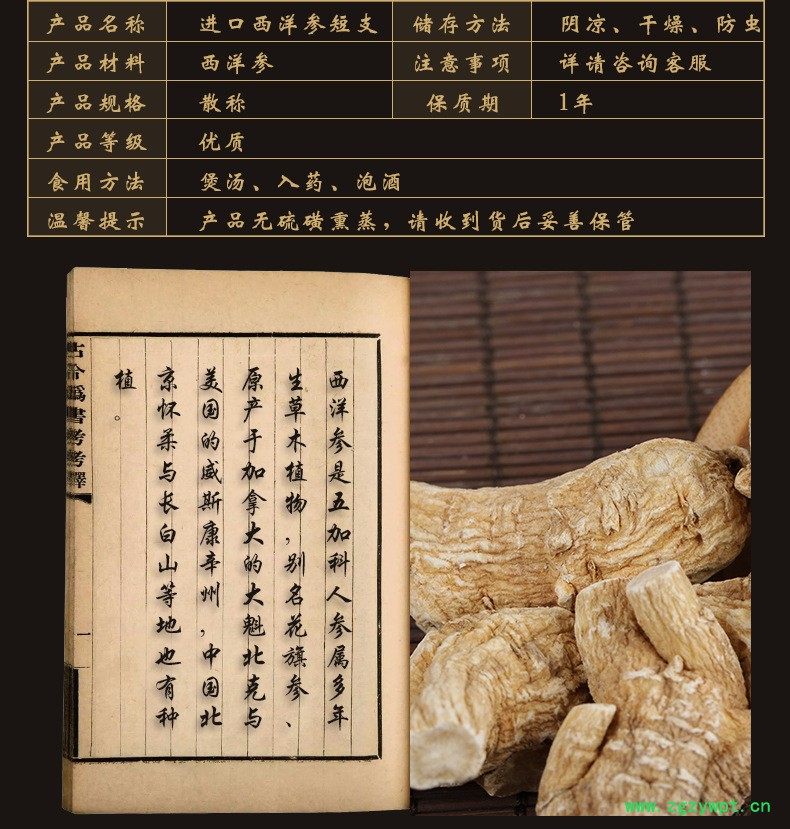 产品名称 进口西洋参短支 储存方法 阴凉、干燥、防虫
产品材料 西洋参 注意事项 详请咨询客服
产品规格 散称 保质期 1年
产品等级 优质
食用方法 煲汤、入药、泡酒
温馨提示 产品无硫磺熏蒸，请收到货后妥善保管
西洋参是五加科人参属多年
生草木植物，别名花旗参、
原产于加拿大的大魁北克与
美国的威斯康辛州，中国北
京怀柔与长白山等地也有种
植。
古今爲書考考釋
一
www.zgzywpt.cn